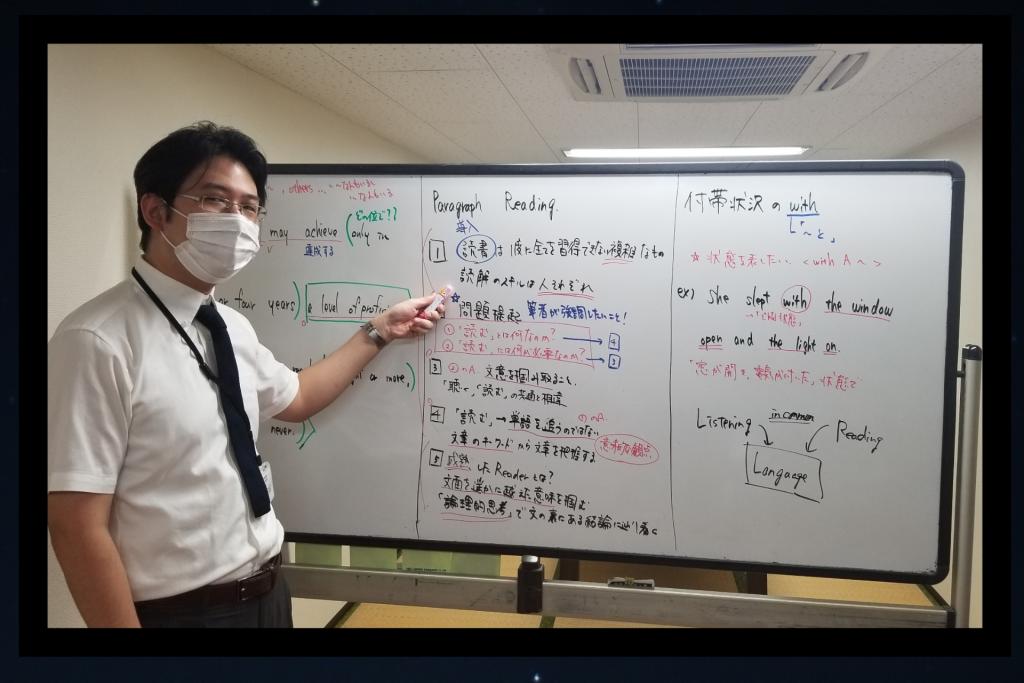 others...
may achieve
only in
達成する
or four years)
a level of profi
or more,
never.
Paragraph Reading.
導入
1 読書は1度に全てを習得できない複雑なもの
読解のスキルは人それぞれ
☆
問題提起 筆者が強調したいこと!
① 「読む」とは何なのか? → 4
② 「読む」には何が必要なのか? → 3
3 ②のA. 文意を掴み取ること。
「聴く」「読む」の共通と相違
4 「読む」→ 単語を追うのではない ①のA.
文章のキーワードから文章を把握する 意味的な観点
5 成熟した Reader とは?
文面を遥かに越えた意味を掴む
「論理的思考」で文の裏にある結論に辿り着く
付帯状況の with
「~と」
☆ 状態を表したい <with A ~>
ex) She slept with the window
open and the light on.
「窓が開き、電気が付いた」状態で
Listening in common Reading
Language